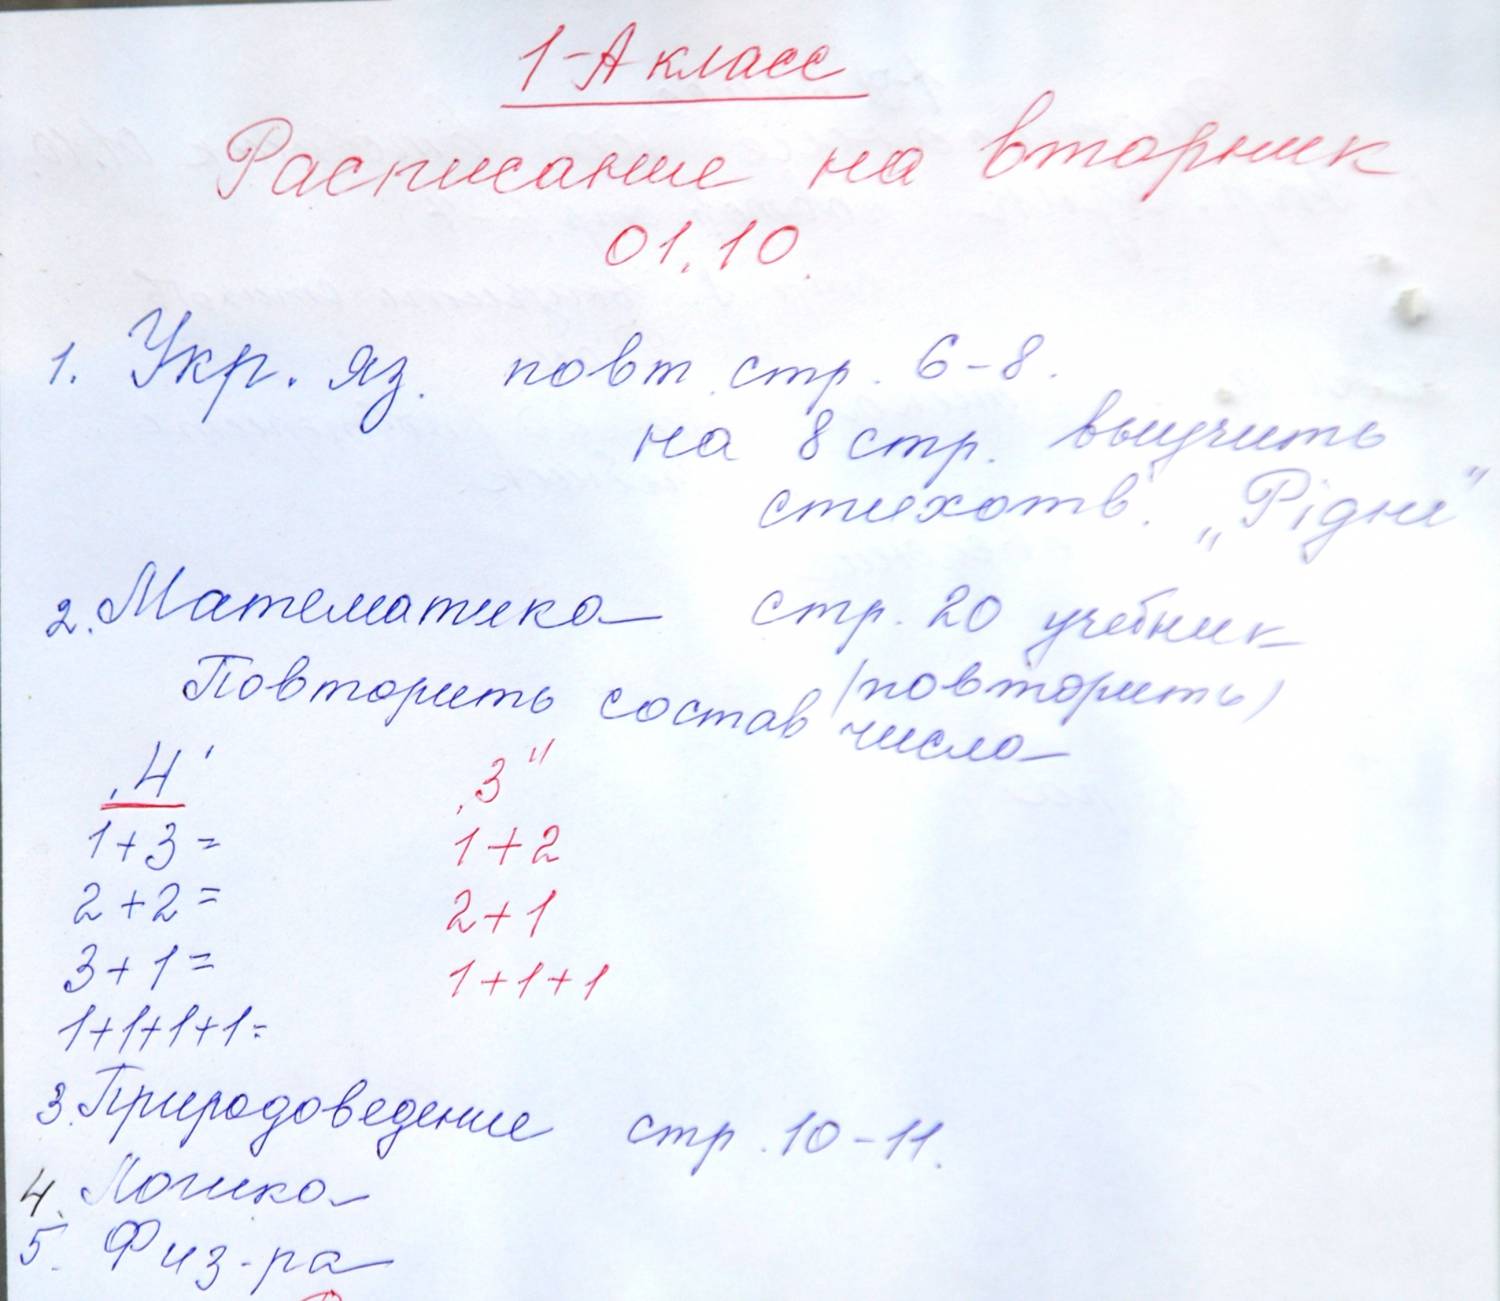 1-А класс
Расписание на вторник
01.10.
1. Укр. яз. повт. стр. 6-8.
на 8 стр. выучить
стихотв. „Рідня"
2. Математика стр. 20 учебник
(повторить)
Повторить состав числа
„4" „3"
1+3= 1+2
2+2= 2+1
3+1= 1+1+1
1+1+1+1=
3. Природоведение стр. 10-11.
4. Логика
5. Физ-ра